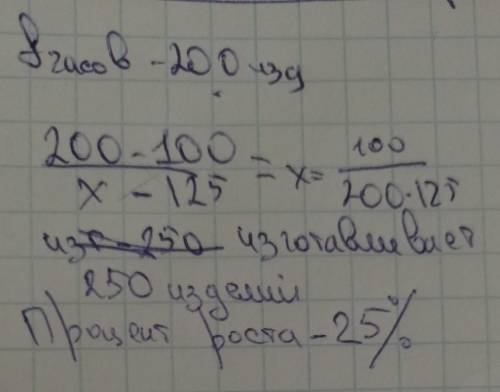 8 часов - 200 изд
200 - 100
х - 125
= х =
100
200·125
из 250 изготавливает
250 изделий
Процент роста - 25%